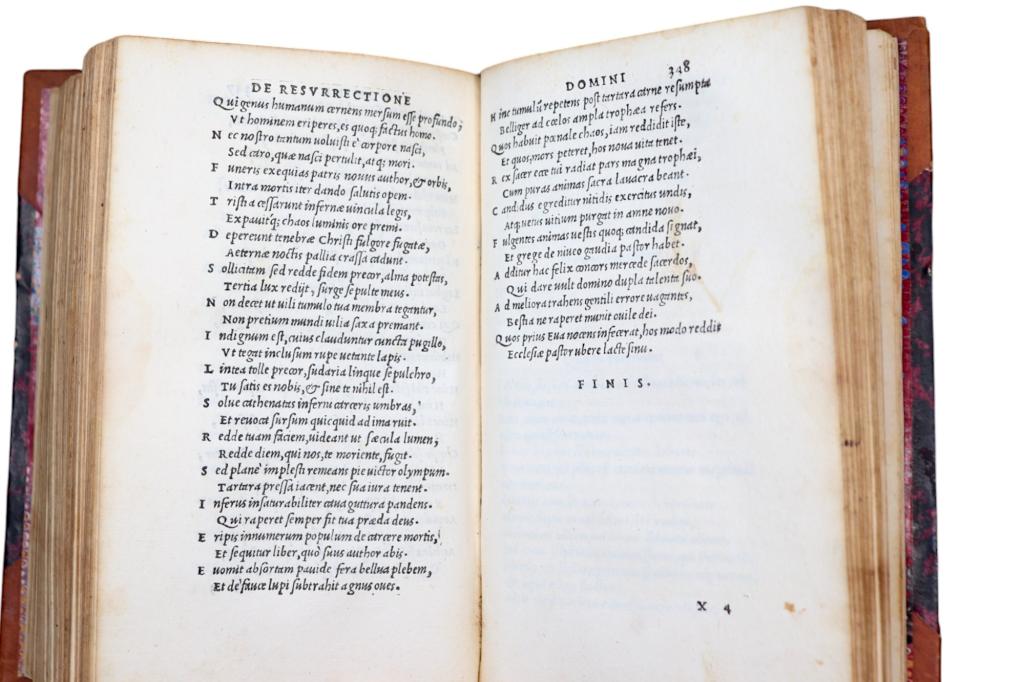 DE RESVRRECTIONE
Qui genus humanum cernens mersum esse profundo;
Vt hominem eriperes, es quoq; factus homo.
N ec nostro tantum uoluisti è corpore nasci,
Sed caro, quæ nasci pertulit, atq; mori.
F uneris exequias patris nouus author, & orbis,
Intra mortis iter dando salutis opem.
T risti a cessarunt infernæ uincula legis,
Expauitq; chaos luminis ore premi.
D epereunt tenebræ Christi fulgore fugatæ,
Aeternæ noctis pallia crassa cadunt.
S ollicitam sed redde fidem precor, alma potestas,
Tertia lux redijt, surge sepulte meus.
N on decet ut uili tumulo tua membra tegantur,
Non pretium mundi uilia saxa premant.
I ndignum est, cuius clauduntur cuncta pugillo,
Vt tegat inclusum rupe uetante lapis.
L intea tolle precor, sudaria linque sepulchro,
Tu satis es nobis, & sine te nihil est.
S olue cathenatas inferni carceris umbras,
Et reuoca sursum quicquid ad ima ruit.
R edde tuam faciem, uideant ut sæcula lumen;
Redde diem, qui nos, te moriente, fugit.
S ed planè implesti remeans pie uictor olympum.
Tartara pressa iacent, nec sua iura tenent.
I nferus insaturabiliter caua guttura pandens.
Qui raperet semper fit tua præda deus.
E ripis innumerum populum de carcere mortis,
Et sequitur liber, quò suus author abis.
E uomit absortam pauide fera bellua plebem,
Et de fauce lupi subtrahit agnus oues.
DOMINI 348
H inc tumulũ repetens post tartara carne resumpta
Belliger ad cœlos ampla trophæa refers.
Quos habuit pœnale chaos, iam reddidit iste,
Et quos mors peteret, hos noua uita tenet.
R ex sacer ecce tui radiat pars magna trophæi,
Cum puras animas sacra lauacra beant.
C andidus egreditur nitidis exercitus undis,
Atq; uetus uitium purgat in amne nouo.
F ulgentes animas uestis quoq; candida signat,
Et grege de niueo gaudia pastor habet.
A dditur hac felix concors mercede sacerdos,
Qui dare uult domino dupla talenta suo.
A d meliora trahens gentili errore uagantes,
Bestia ne raperet munit ouile dei.
Quos prius Eua nocens infecerat, hos modo reddit
Ecclesiæ pastor ubere lacte sinu.
FINIS.
X 4